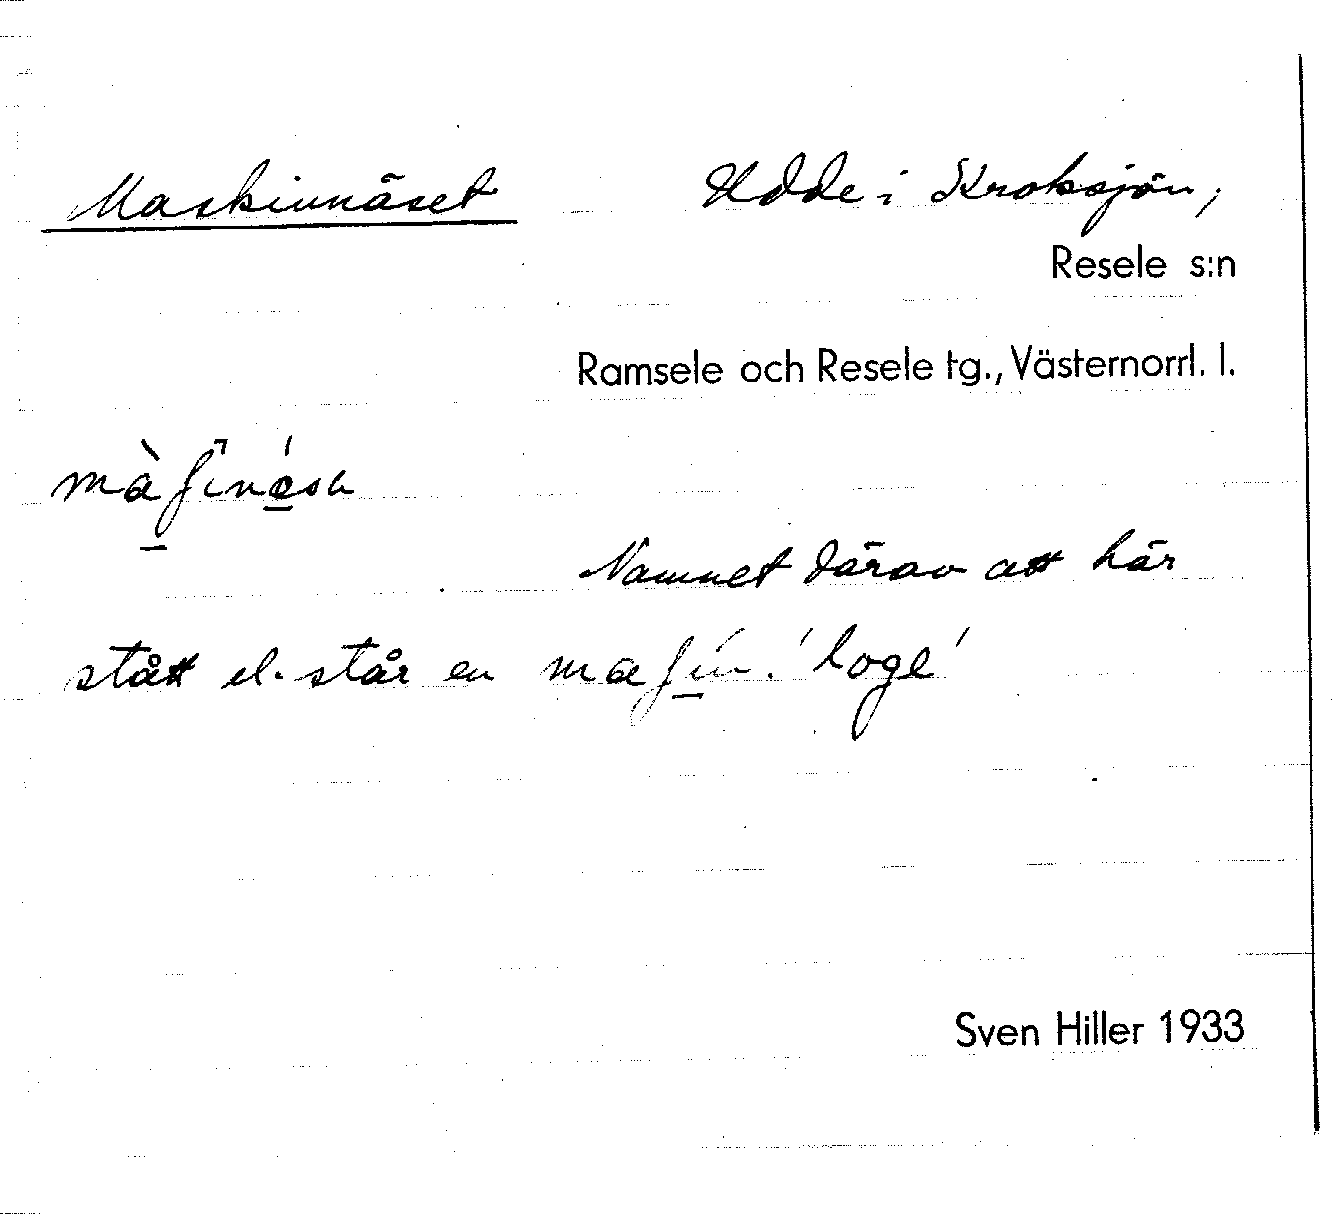 Maskinnäset Udde i Kroksjön,
Resele s:n
Ramsele och Resele tg., Västernorrl. l.
Namnet därav att här
stått el. står en maʃin. 'loge'
Sven Hiller 1933